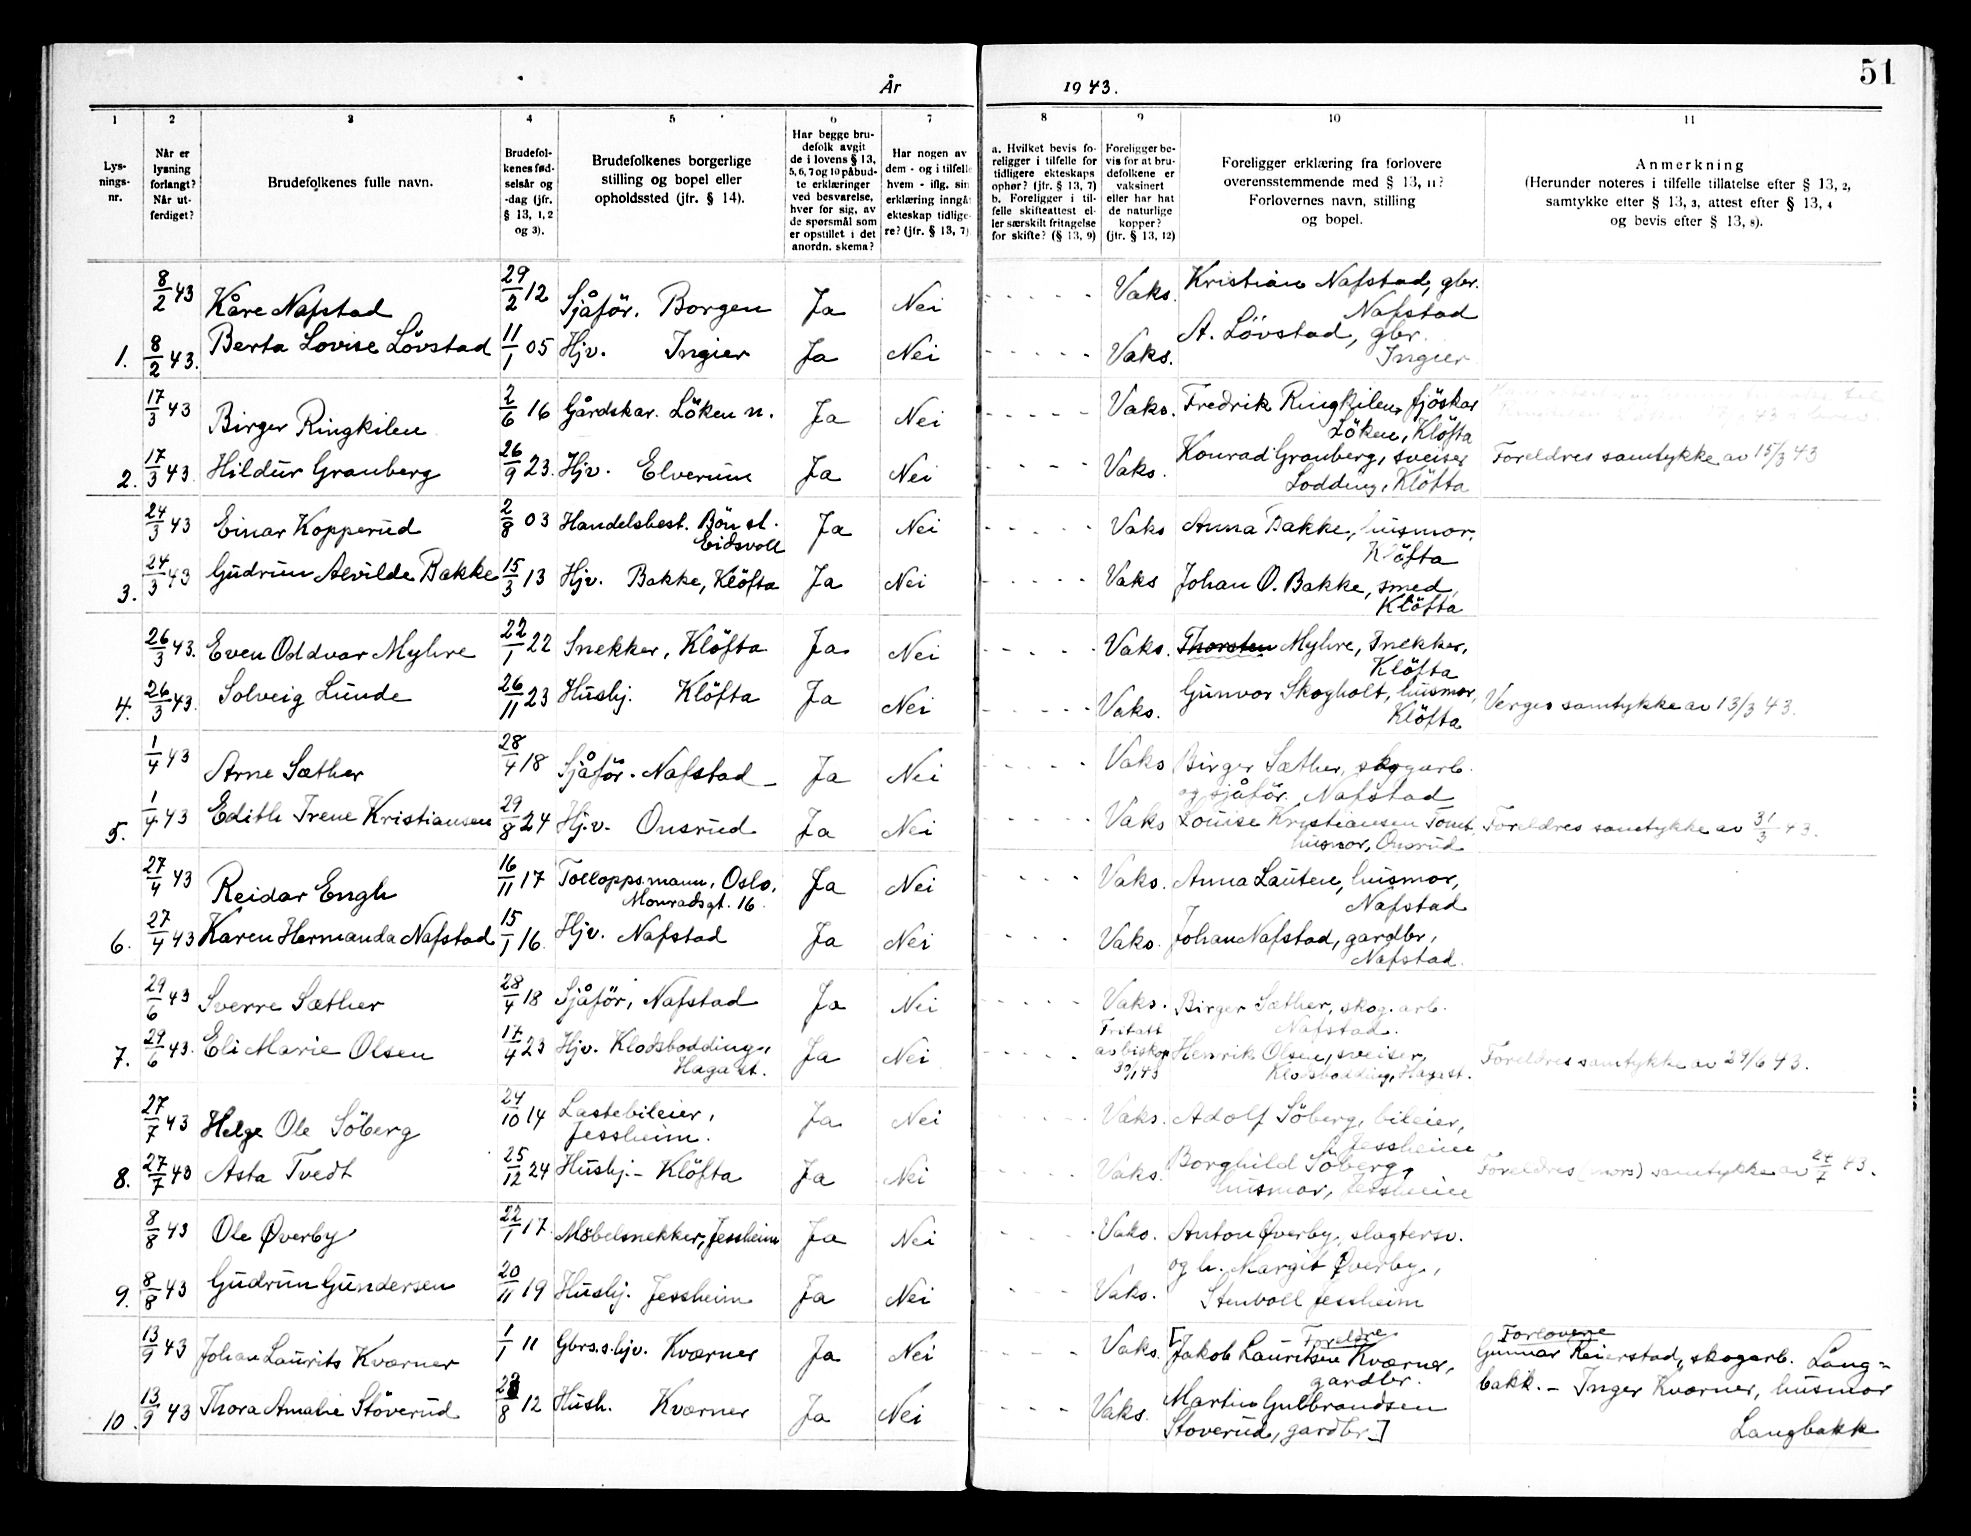 År 1943.
51
1 2 3 4 5 6 7 8 9 10 11
Lys-
nings-
nr.
Når er
lysning
forlangt?
Når ut-
ferdiget?
Brudefolkenes fulle navn.
Brudefol-
kenes fød-
selsår og
-dag (jfr.
§ 13, 1, 2
og 3).
Brudefolkenes borgerlige
stilling og bopel eller
opholdssted (jfr. § 14).
Har begge bru-
defolk avgit
de i lovens § 13,
5, 6, 7 og 10 påbud-
te erklæringer
ved besvarelse,
hver for sig, av
de spørsmål som
er opstillet i det
anordn. skema?
Har nogen av
dem - og i tilfelle
hvem - iflg. sin
erklæring inngå
ekteskap tidlige-
re? (jfr. § 13, 7)
a. Hvilket bevis fo-
religger i tilfelle for
tidligere ekteskaps
ophør? (jfr. § 13, 7)
b. Foreligger i til-
felle skifteattest el-
ler særskilt fritagelse
for skifte? (§ 13, 9)
Foreligger be-
vis for at bru-
defolkene er
vaksinert
eller har hat
de naturlige
kopper?
(jfr. § 13, 12)
Foreligger erklæring fra forlovere
overensstemmende med § 13, 11?
Forlovernes navn, stilling
og bopel.
Anmerkning
(Herunder noteres i tilfelle tillatelse efter § 13, 2,
samtykke efter § 13, 3, attest efter § 13, 4
og bevis efter § 13, 8).
8/2 43 Kåre Nafstad 29/2 12 Sjåför. Borgen Ja Nei - - - - - Vaks. Kristian Nafstad, gbr.
Nafstad
1. 8/2 43. Berta Lovise Lövstad 11/1 05 Hjv. Ingier Ja Nei - - - - - Vaks. A. Lövstad, gbr.
Ingier
17/3 43 Birger Ringkilen 2/6 16 Gårdskar. Löken n. Ja Nei - - - - - Vaks. Fredrik Ringkilen, fjöskar
Löken, Klöfta
2. 17/3 43. Hildur Granberg 26/9 23. Hjv. Elverum Ja Nei - - - - Vaks. Konrad Granberg, sveiser Foreldres samtykke av 15/3 43
Lodding, Klöfta
24/3 43 Einar Kopperud 2/8 03 Handelsbest. Bön st. Ja Nei - - - - Vaks Anna Bakke, husmor.
Eidsvoll Klöfta
3. 24/3 43 Gudrun Alvilde Bakke 15/3 13 Hjv. Bakke, Klöfta Ja Nei - - - - - Vaks Johan O. Bakke, smed,
Klöfta
26/3 43. Even Oddvar Myhre 22/1 22 Snekker, Klöfta Ja Nei - - - - - Vaks. Thorsten Myhre, Snekker,
Klöfta
4. 26/3 43. Solveig Lunde 26/11 23 Hushj. Klöfta Ja Nei - - - - - Vaks. Gunvor Skogholt, husmor, Verges samtykke av 13/3 43.
Klöfta
1/4 43 Arne Sæther 28/4 18 Sjåför. Nafstad - Ja Nei - - - - - Vaks Birger Sæther, skogarb.
og sjåför. Nafstad
5. 1/4 43 Edith Irene Kristiansen 29/8 24 Hj.v. Onsrud Ja Nei - - - - - Vaks Louise Kristiansen Foreldres samtykke av 31/3 43.
husmor, Onsrud
27/4 43 Reidar Engh 16/11 17 Tolloppsmann, Oslo, Ja Nei - - - - Vaks. Anna Lauten, husmor,
Monradsgt. 16. Nafstad
6. 27/4 43 Karen Hermanda Nafstad 15/1 16. Hjv. Nafstad Ja Nei - - - - Vaks. Johan Nafstad, gardbr,
Nafstad.
29/6 43 Sverre Sæther 28/4 18 Sjåför, Nafstad Ja Nei - - - - - Vaks. Birger Sæther, skog.arb.
Nafstad.
7. 29/6 43. Eli Marie Olsen 17/4 23 Hjv. Klodsbodding, Ja Nei - - - - - Fritatt av biskop Henrik Olsen, sveiser, Foreldres samtykke av 29/6 43.
Haga st. Klodsbodding, Haga st.
27/7 43 Helge Ole Söberg 24/10 14 Lastebileier, Ja Nei - - - - Vaks. Adolf Söberg, bileier,
Jessheim. Jessheim
8. 27/7 43 Asta Tvedt 25/12 24 Hushj. - Klöfta Ja Nei - - - - Vaks. Borghild Söberg, Foreldres (mors) samtykke av 24/7 43.
husmor, Jessheim
8/8 43 Ole Øverby 22/1 17. Möbelsnekker, Jessheim Ja Nei - - - - Vaks. Anton Øverby, slagtersv.
og h. Margit Øverby,
9. 8/8 43 Gudrun Gundersen 20/11 19 Hushj. Jessheim Ja Nei - - - Vaks. Stenvoll Jessheim
Foreldre Forlovere
13/9 43 Johan Laurits Kværner 1/1 11 Gbrs.s. hjv. Kværner Ja Nei - - - - Vaks. [Jakob Lauritsen Kværner, Gunnar Reierstad, skogarb. Lang-
gardbr. bakk. - Inger Kværner, husmor
10. 13/9 43 Thora Amalie Stöverud 8 12 Hush. Kværner Ja Nei - - - - Vaks. Martin Gulbrandsen Langbakk
Stoverud, gardbr.]